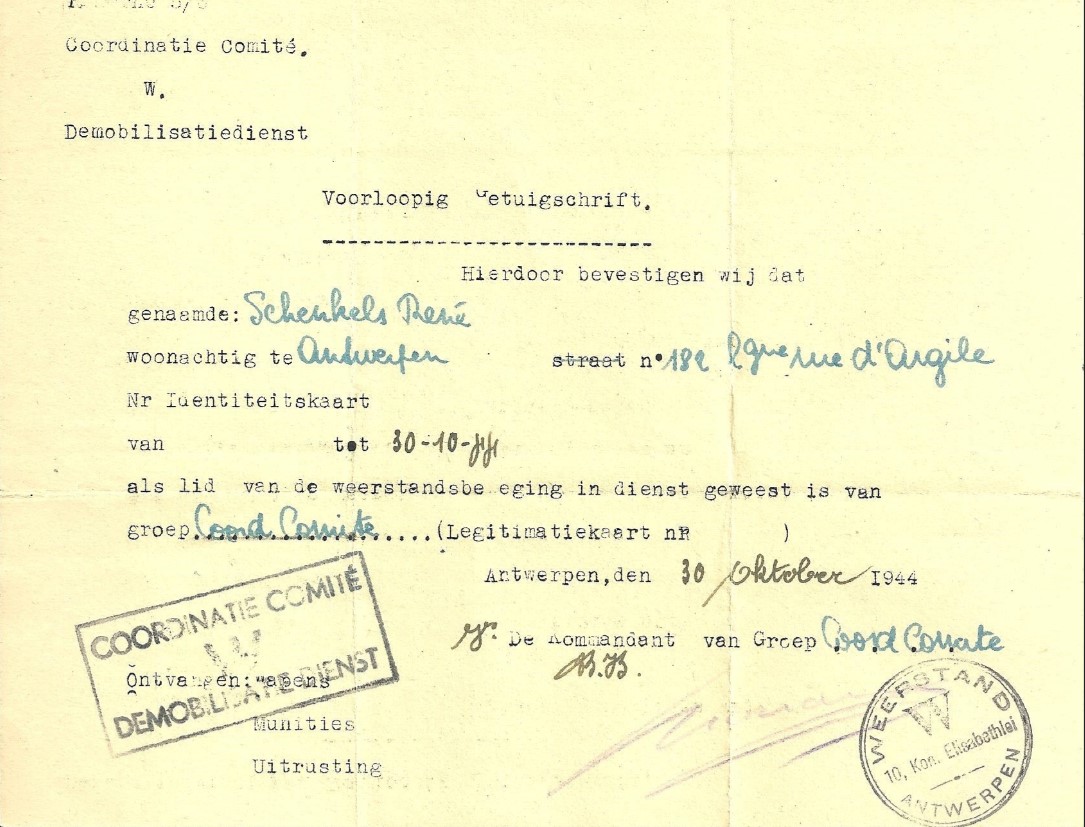 Coordinatie Comité.
W.
Demobilisatiedienst
Voorloopig Getuigschrift.
--------------------------
Hierdoor bevestigen wij dat
genaamde: Schenkels René
woonachtig te Antwerpen straat n° 182 lgue rue d'Argile
Nr Identiteitskaart
van tot 30-10-44
als lid van de weerstandsbe eging in dienst geweest is van
groep Coord Comite (Legitimatiekaart nR )
Antwerpen, den 30 Oktober 1944
De Kommandant van Groep Coord Comite
B.B.
COORDINATIE COMITÉ
W
DEMOBILISATIE DIENST
Ontvangen: wapens
Munities
Uitrusting
WEERSTAND
W
10, Kon. Elisabethlei
ANTWERPEN